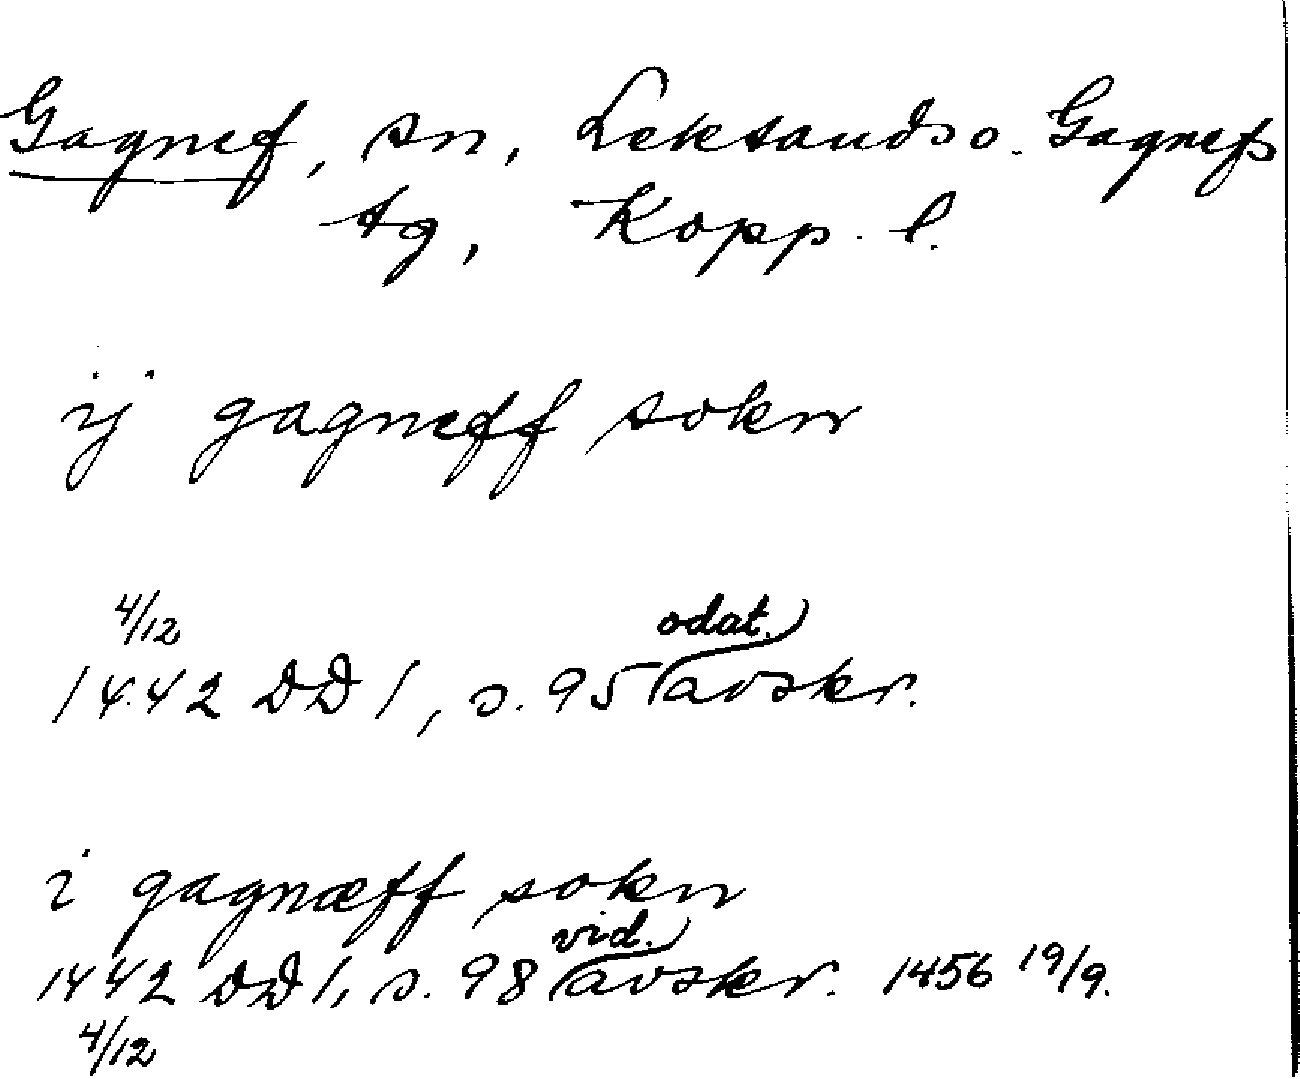 Gagnef, sn, Leksands o. Gagnefs
tg, Kopp. l.
ij gagneff sokn
4/12
odat.
1442 DD 1, s. 95 avskr.
i gagnæff sokn
vid.
1442 DD 1, s. 98 avskr. 1456 19/9.
4/12